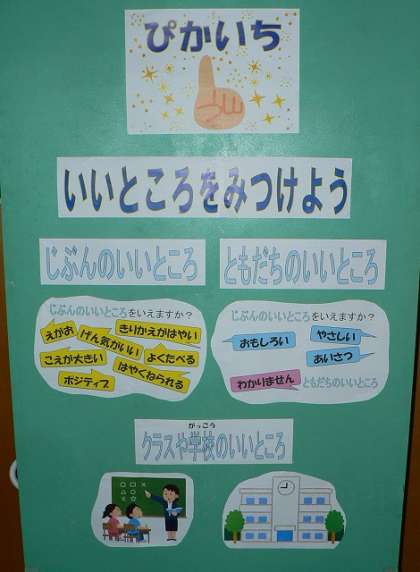 ぴかいち
いいところをみつけよう
じぶんのいいところ
ともだちのいいところ
じぶんのいいところをいえますか？
えがお
げん気がいい
きりかえがはやい
こえが大きい
よくたべる
はやくねられる
ポジティブ
じぶんのいいところをいえますか？
おもしろい
やさしい
あいさつ
わかりません
ともだちのいいところ
がっこう
クラスや学校のいいところ